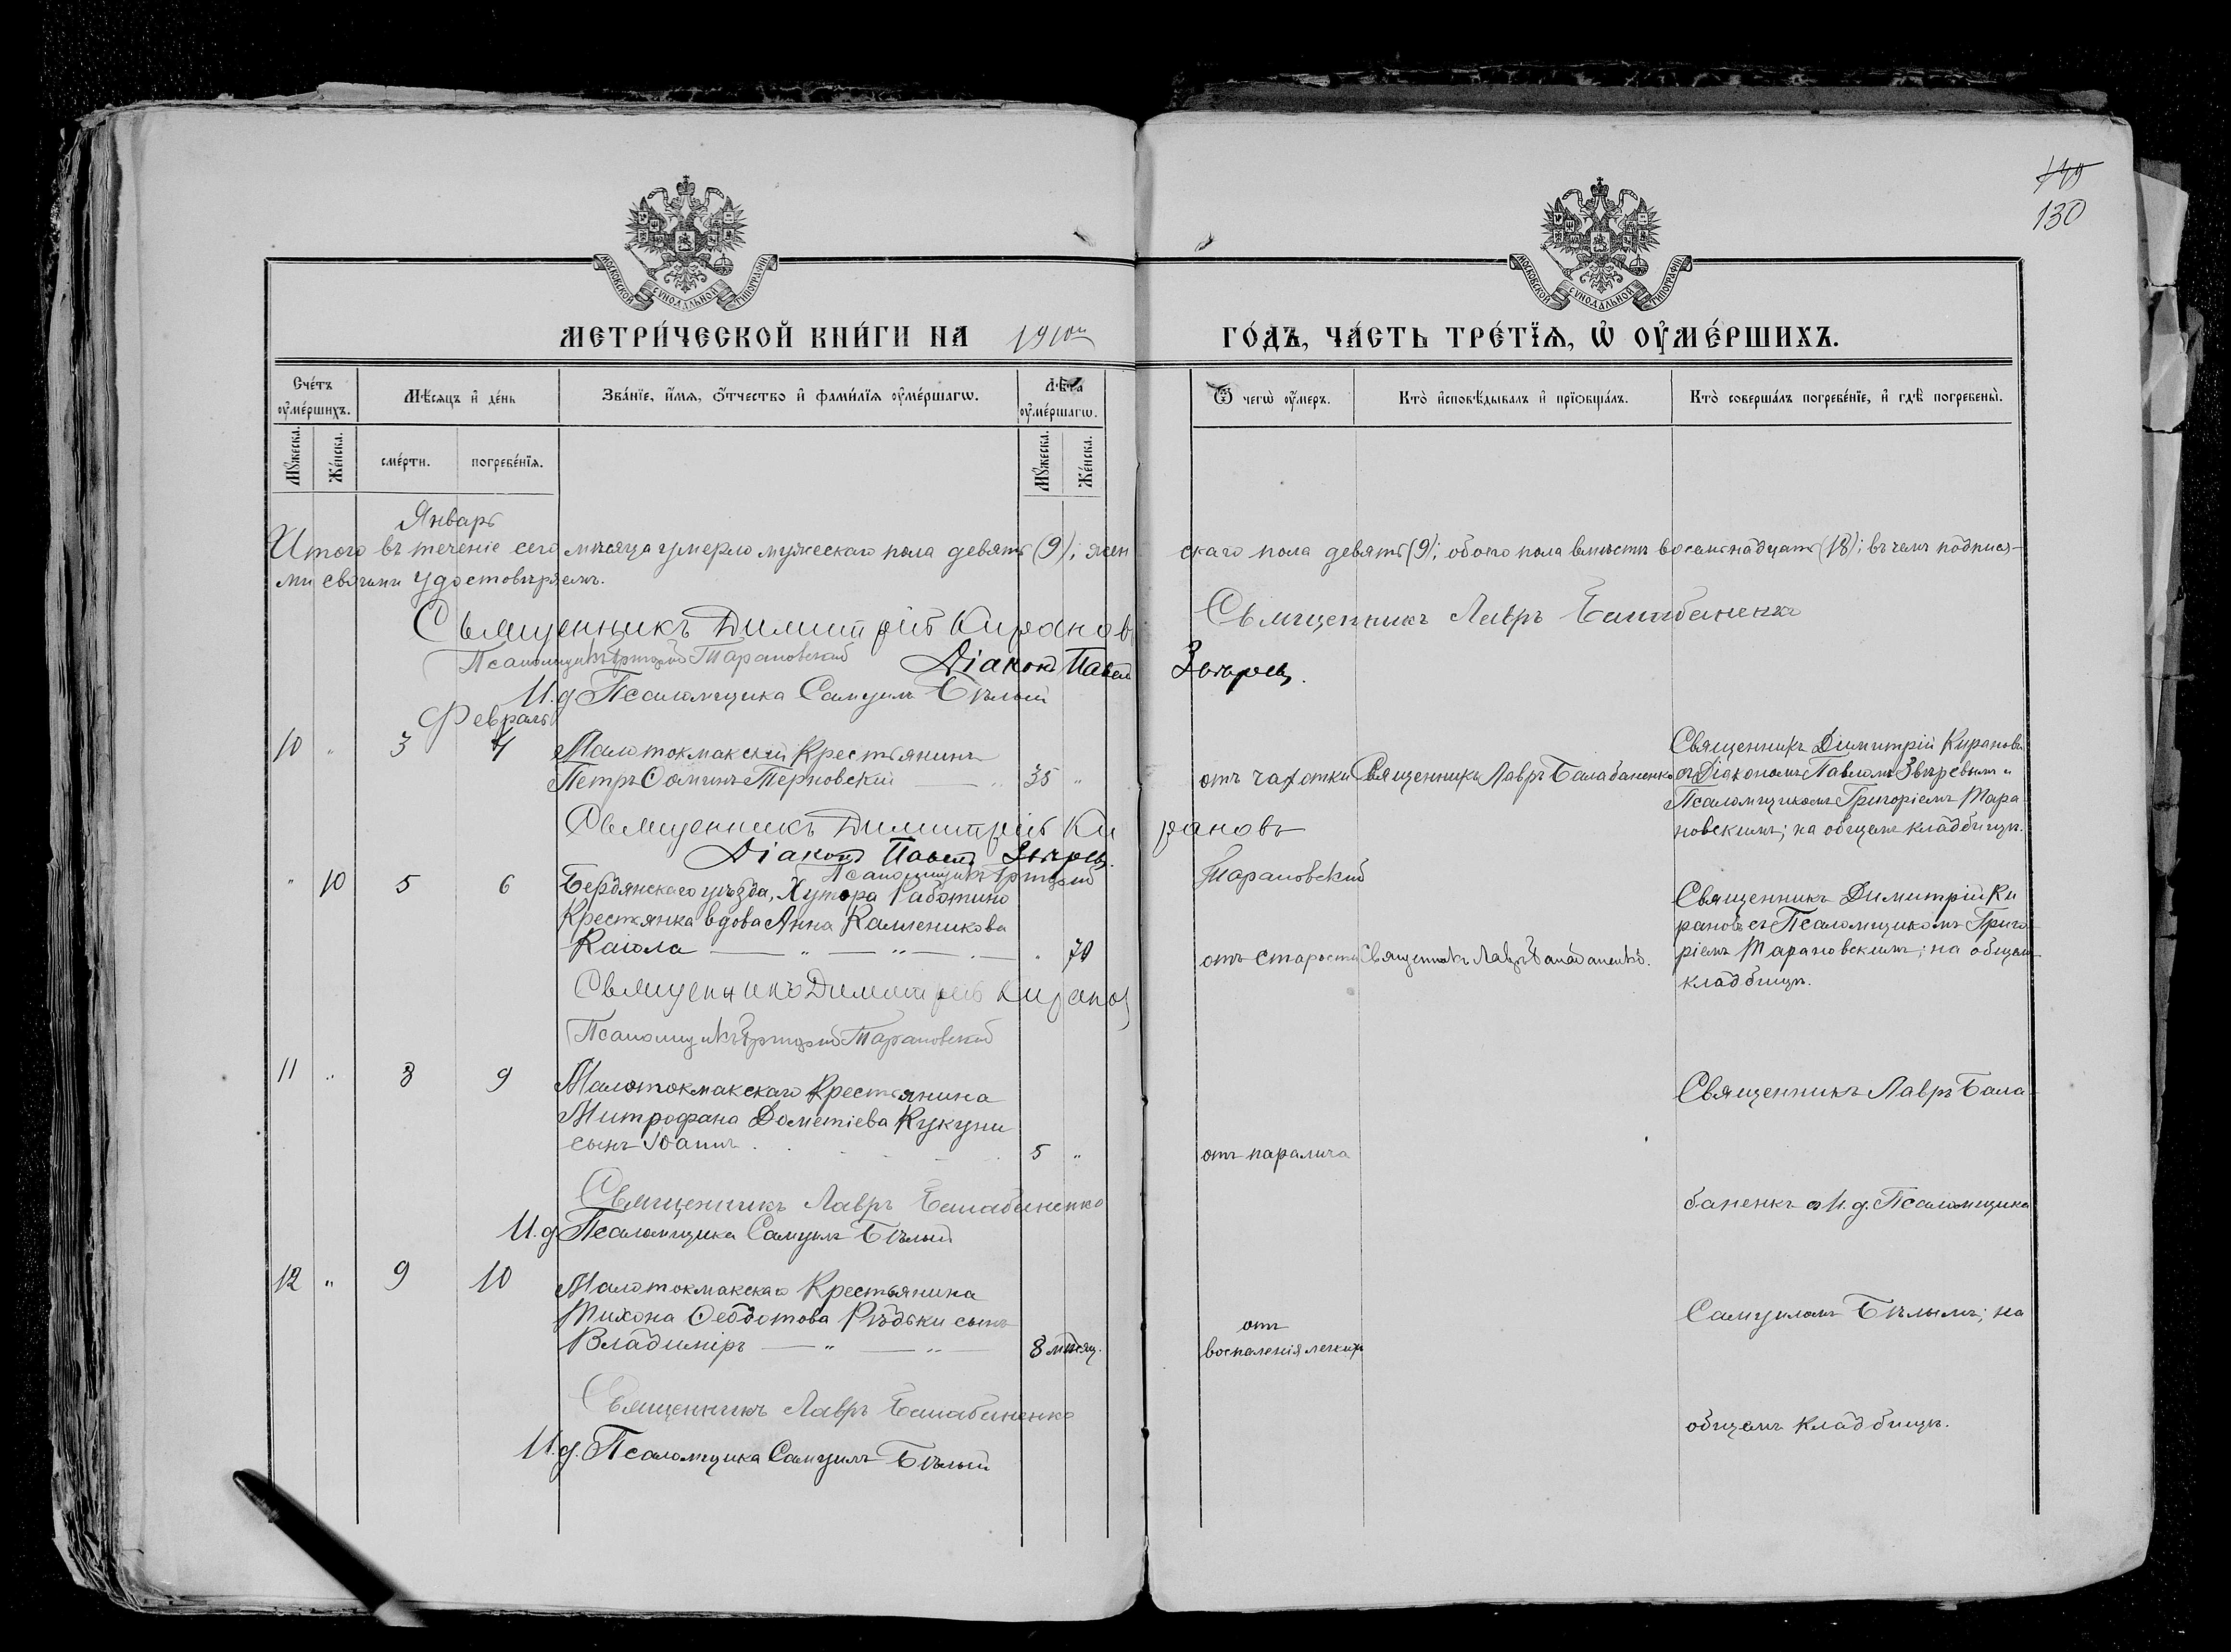 149
130
МОСКОВСКОЙ СѴНОДАЛЬНОЙ ТИПОГРАФІИ
МОСКОВСКОЙ СѴНОДАЛЬНОЙ ТИПОГРАФІИ
МЕТРИ́ЧЕСКОЙ КНИ́ГИ НА 1910й ГО́ДЪ, ЧА́СТЬ ТРЕ́ТЇѦ, Ѡ҆ ОУ҆МЕ́РШИХЪ.
Сче́тъ оу҆ме́ршихъ.
Мѣ́сяцъ и҆ де́нь
Зва́нїе, и҆́мѧ, ѻ҆́тчество и҆ фами́лїѧ оу҆ме́ршагѡ.
Лѣ́та оу҆ме́ршагѡ.
Ѿ чегѡ̀ оу҆́меръ.
Кто̀ и҆сповѣ́дывалъ и҆ прїѡбща́лъ.
Кто̀ соверша́лъ погребе́нїе, и҆ гдѣ̀ погребены̀.
Мꙋ́жеска.
Же́нска.
сме́рти.
погребе́нїѧ.
Мꙋ́жеска.
Же́нска.
Январь
Итого въ теченіе сего мѣсяца умерло мужескаго пола девять (9); женскаго пола девять (9); обоего пола вмѣстѣ восемнадцать (18); въ чемъ подпися-
ми своими удостовѣряемъ.
Священникъ Димитрій Кирановъ
Священникъ Лавръ Балабаненко
Псаломщикъ Григорій Тарановскій Діаконъ Павелъ Звѣревъ.
И.д. Псаломщика Самуилъ Бѣлый
Февраль
10 " 3 4 Малотокмакскій Крестьянинъ
Петръ Ѳоминъ Терновскій 35 "
отъ чахотки
Священникъ Лавръ Балабаненко
Священникъ Димитрій Кирановъ
съ Діакономъ Павломъ Звѣревымъ и
Псаломщикомъ Григоріемъ Тара
новскимъ; на общемъ кладбищѣ.
Священникъ Димитрій Кирановъ
Діаконъ Павелъ Звѣревъ.
Псаломщикъ Григорій Тарановскій
" 10 5 6 Бердянскаго уѣзда, Хутора Работино
Крестьянка вдова Анна Каленикова
Кайола " 70
отъ старости
Священникъ Лавръ Балабаненко.
Священникъ Димитрій Ки
рановъ съ Псаломщикомъ Григо
ріемъ Тарановскимъ; на общемъ
кладбищѣ.
Священникъ Димитрій Кирановъ
Псаломщикъ Григорій Тарановскій
11 " 8 9 Малотокмакскаго Крестьянина
Митрофана Дометіева Кукуни
сынъ Іоаннъ 5 "
отъ паралича
Священникъ Лавръ Бала
Священникъ Лавръ Балабаненко
И.д. Псаломщика Самуилъ Бѣлый
баненко съ И.д. Псаломщика
12 " 9 10 Малотокмакскаго Крестьянина
Тихона Ѳеодотова Рѣдьки сынъ
Владиміръ 8 мѣсяц.
отъ
воспаленія легкихъ
Самуиломъ Бѣлымъ; на
Священникъ Лавръ Балабаненко
И.д. Псаломщика Самуилъ Бѣлый
общемъ кладбищѣ.